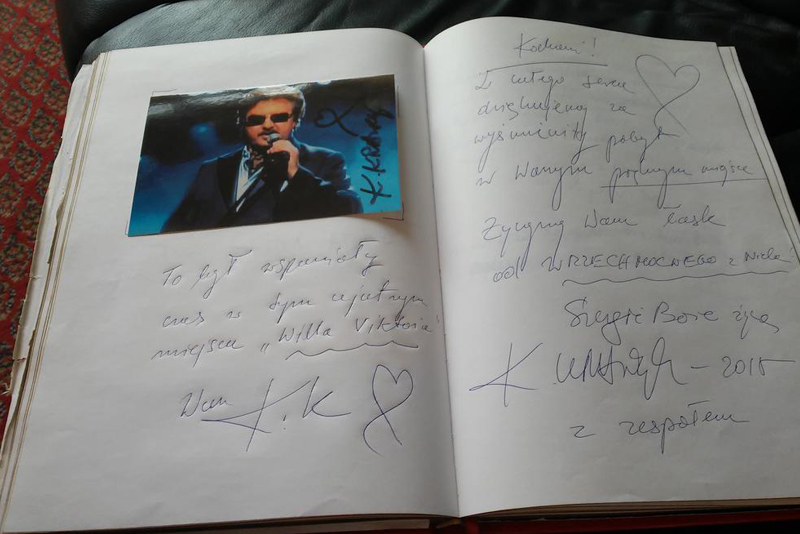 K. KRAWCZ
To był wspaniały
czas w tym
miejscu „Willa Viktoria"
Wam K.K
Kochani!
Z całego serca
dziękujemy za
wyśmienity pobyt
w Waszym pięknym miejscu
Życzymy Wam łask
od WRZECHMOCNEGO z Nieba
Szczęść Boże życzą
K. Krawczyk – 2015
z zespołem